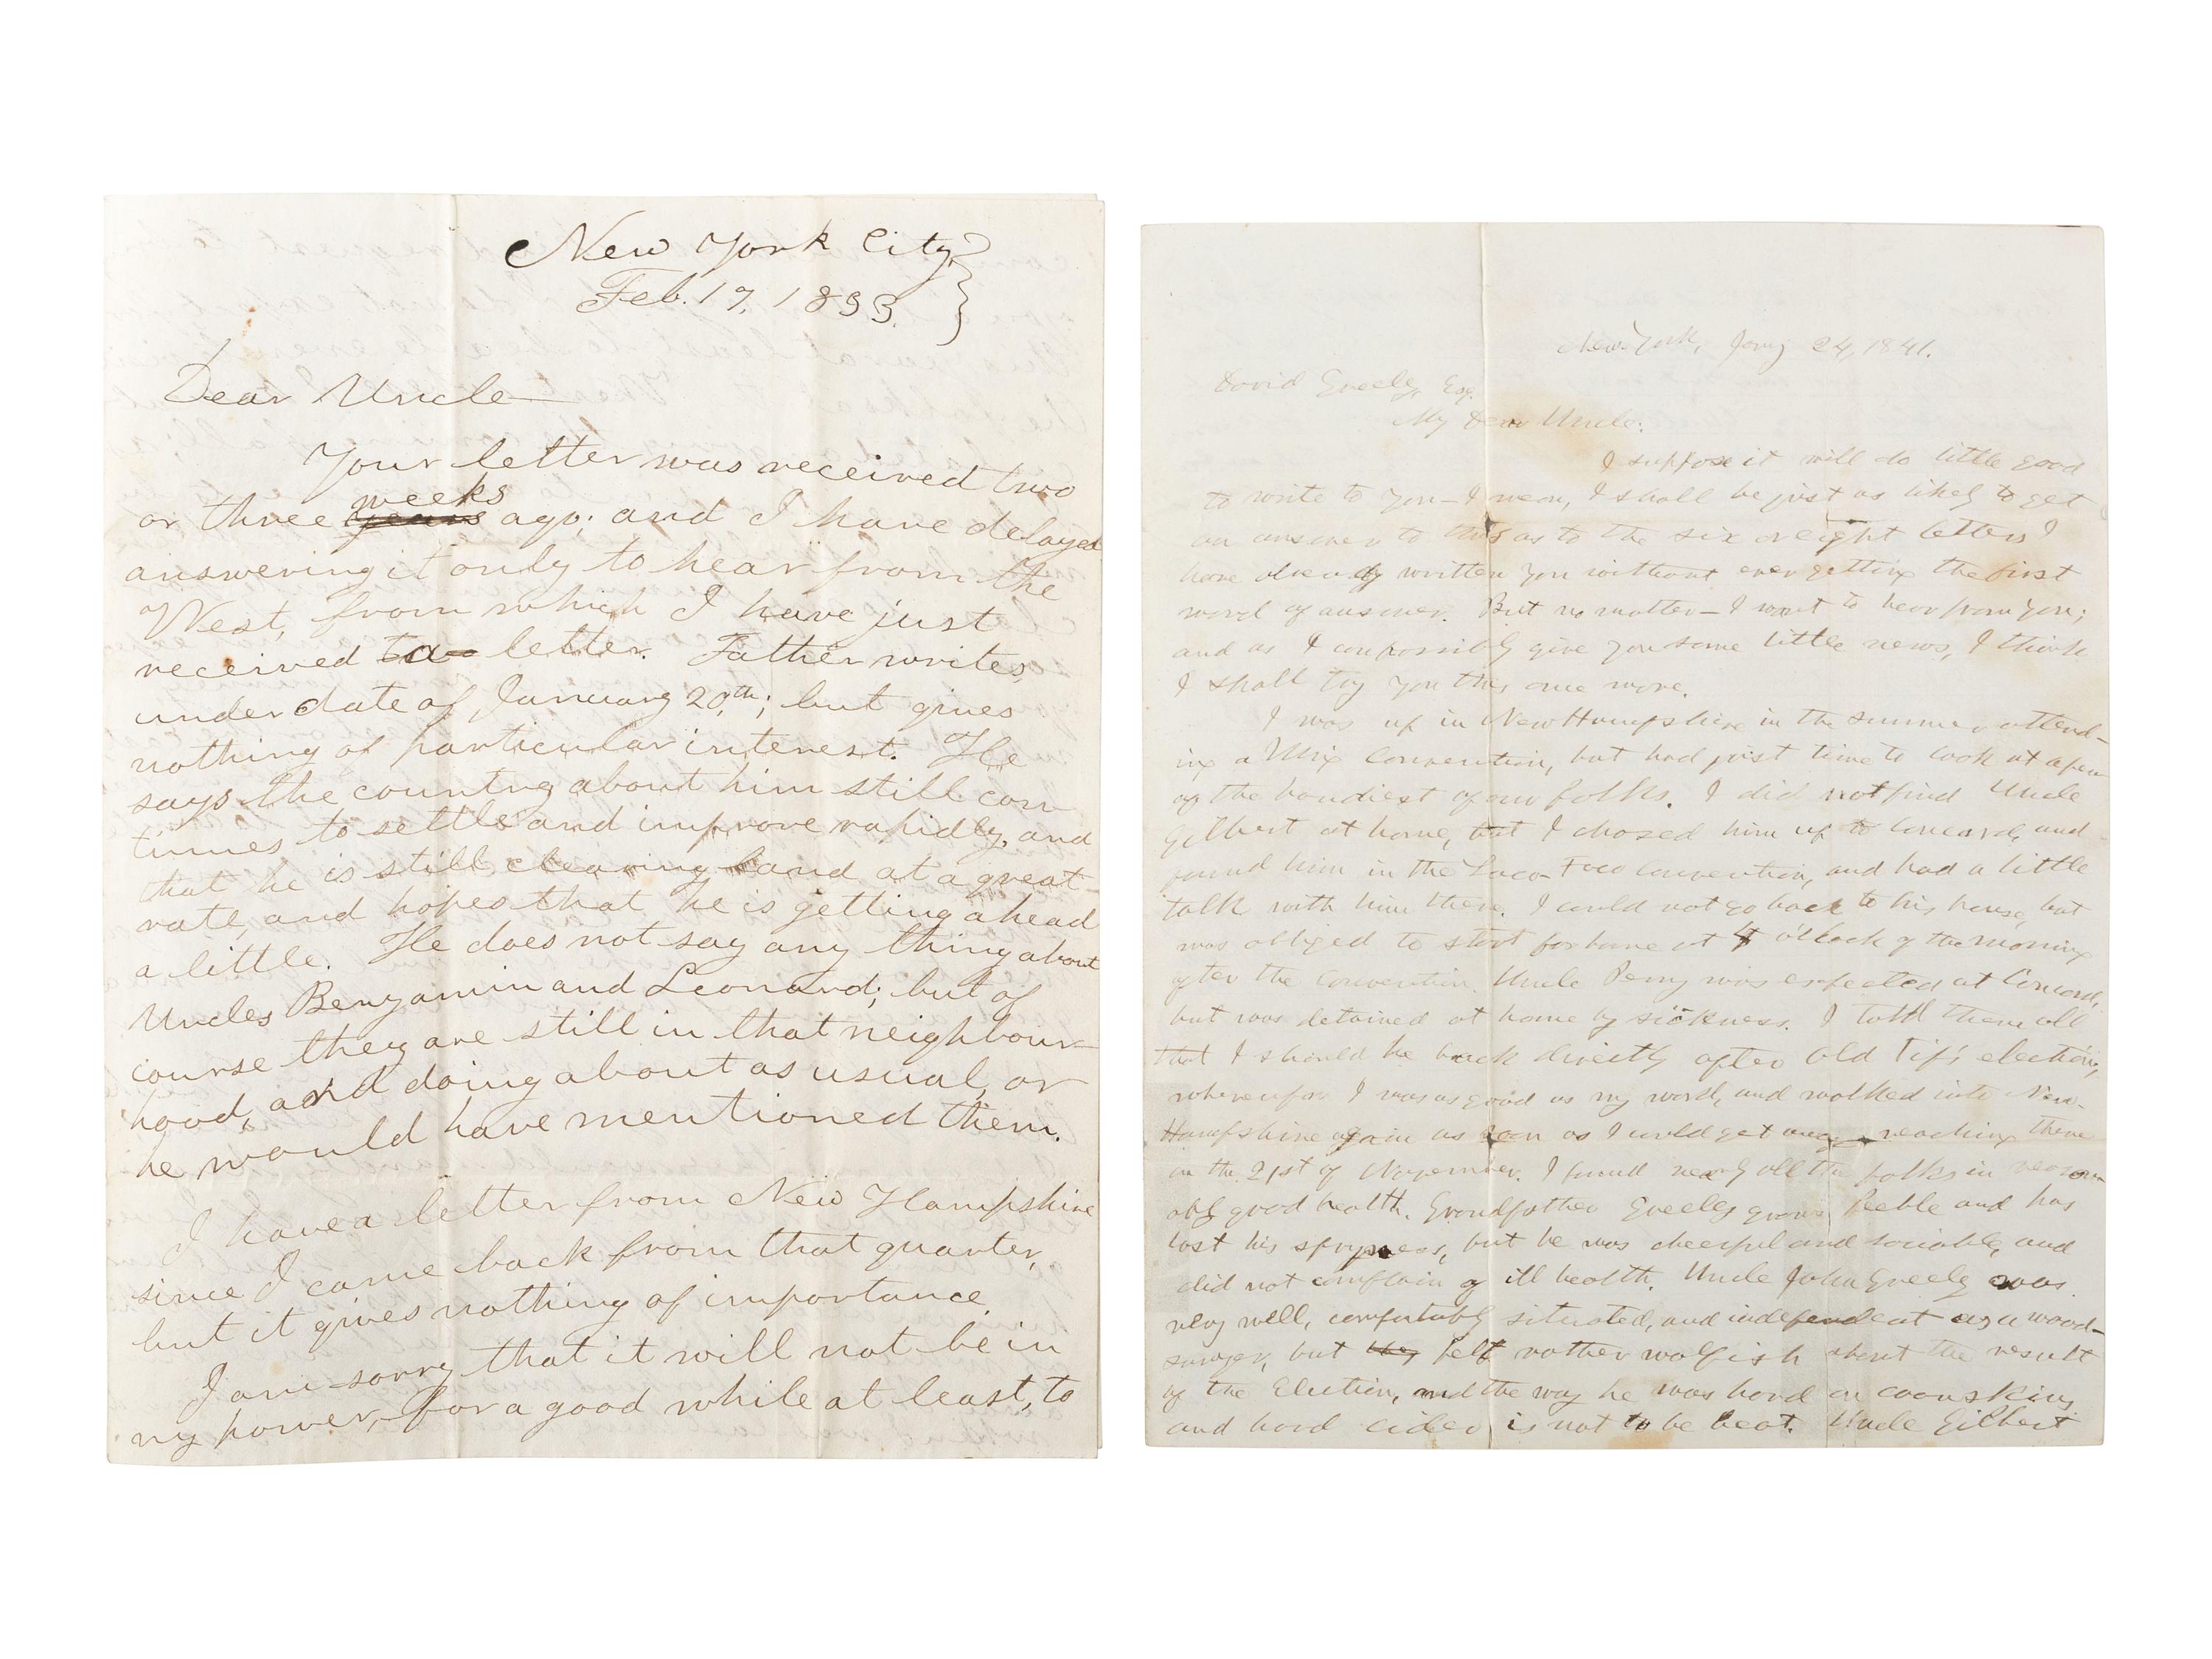 New York City,
Feb. 17, 1833.
Dear Uncle
Your letter was received two
weeks
or three years ago; and I have delayed
answering it only to hear from the
West, from which I have just
received a letter. Father writes,
under date of January 20th; but gives
nothing of particular interest. He
says the country about him still con
tinues to settle and improve rapidly, and
that he is still clearing land at a great
rate, and hopes that he is getting ahead
a little. He does not say any thing about
Uncles Benjamin and Leonard; but of
course they are still in that neighbour-
hood, and doing about as usual, or
he would have mentioned them.
I have a letter from New Hampshire
since I came back from that quarter,
but it gives nothing of importance.
I am sorry that it will not be in
my power, for a good while at least, to
New York, Jany 24, 1841.
David Greeley, Esq.
My Dear Uncle:
I suppose it will do little good
to write to you—I mean, I shall be just as likely to get
an answer to this as to the six or eight letters I
have already written you without ever getting the first
word of answer. But no matter—I want to hear from you;
and as I can possibly give you some little news, I think
I shall try you this once more.
I was up in New Hampshire in the summer attend-
ing a Whig Convention, but had just time to look at a few
of the handiest of our folks. I did not find Uncle
Gilbert at home, but I chased him up to Concord, and
found him in the Loco-Foco Convention, and had a little
talk with him there. I could not go back to his house, but
was obliged to start for home at 4 o'clock of the morning
after the Convention. Uncle Perry was expected at Concord,
but was detained at home by sickness. I told them all
that I should be back directly after Old Tip's election,
whereupon I was as good as my word, and walked into New-
Hampshire again as soon as I could get away, reaching there
in the 21st of November. I found nearly all the folks in reason
ably good health. Grandfather Greeley grows feeble and has
lost his spryness, but he was cheerful and sociable, and
did not complain of ill health. Uncle John Greely was
very well, comfortably situated, and independent as a wood-
sawyer, but felt rather wolfish about the result
of the Election, and the way he was hard on coonskins
and hard cider is not to be beat. Uncle Gilbert